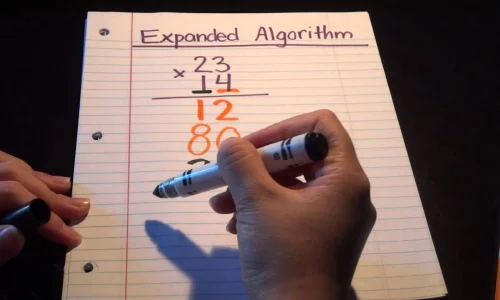 Expanded Algorithm
23
× 14
12
80